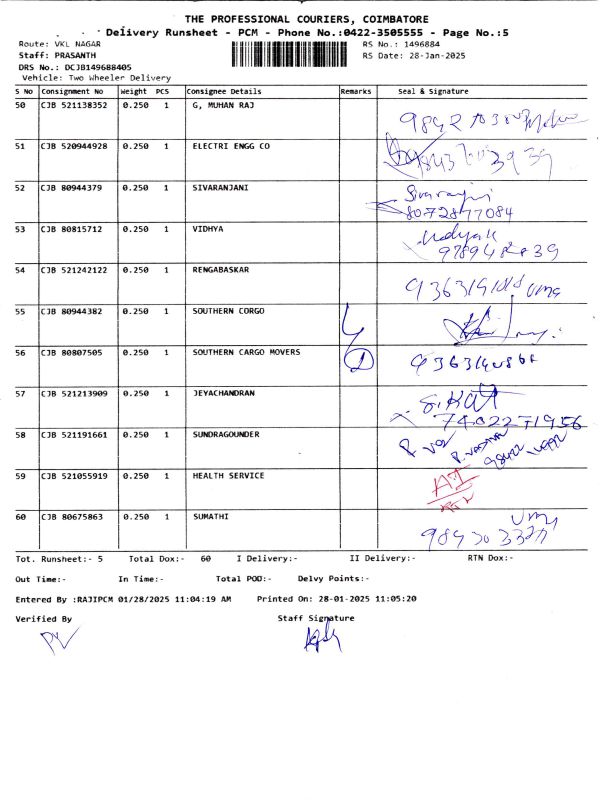 THE PROFESSIONAL COURIERS, COIMBATORE
Delivery Runsheet - PCM - Phone No.:0422-3505555 - Page No.:5
Route: VKL NAGAR RS No.: 1496884
Staff: PRASANTH RS Date: 28-Jan-2025
DRS No.: DCJB149688405
Vehicle: Two Wheeler Delivery
S No Consignment No Weight PCS Consignee Details Remarks Seal & Signature
50 CJB 521138352 0.250 1 G, MUHAN RAJ
51 CJB 520944928 0.250 1 ELECTRI ENGG CO
52 CJB 80944379 0.250 1 SIVARANJANI
8072877084
53 CJB 80815712 0.250 1 VIDHYA
54 CJB 521242122 0.250 1 RENGABASKAR
55 CJB 80944382 0.250 1 SOUTHERN CORGO
56 CJB 80807505 0.250 1 SOUTHERN CARGO MOVERS
57 CJB 521213909 0.250 1 JEYACHANDRAN
58 CJB 521191661 0.250 1 SUNDRAGOUNDER
59 CJB 521055919 0.250 1 HEALTH SERVICE
60 CJB 80675863 0.250 1 SUMATHI
Tot. Runsheet:- 5 Total Dox:- 60 I Delivery:- II Delivery:- RTN Dox:-
Out Time:- In Time:- Total POD:- Delvy Points:-
Entered By :RAJIPCM 01/28/2025 11:04:19 AM Printed On: 28-01-2025 11:05:20
Verified By Staff Signature